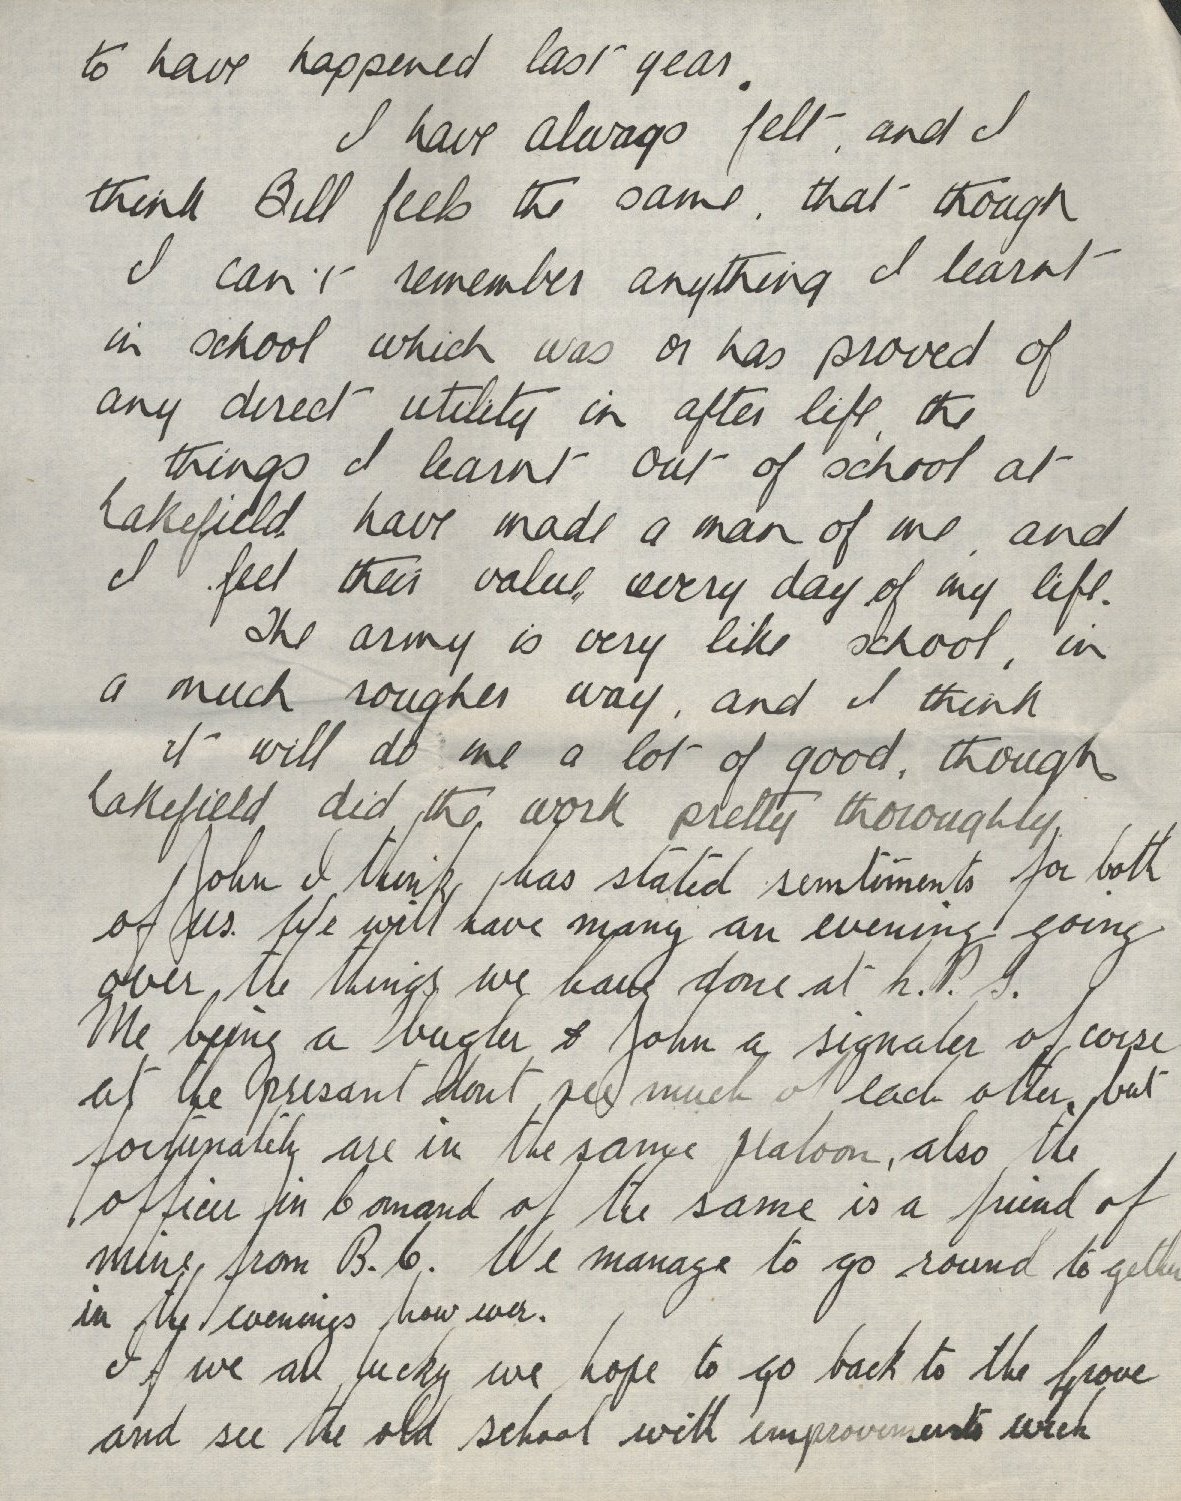 to have happened last year.
I have always felt, and I
think Bill feels the same, that though
I can't remember anything I learnt
in school which was or has proved of
any direct utility in after life, the
things I learnt out of school at
Lakefield have made a man of me, and
I feel their value, every day of my life.
The army is very like school, in
a much rougher way, and I think
it will do me a lot of good, though
Lakefield did the work pretty thoroughly.
John I think, has stated sentiments for both
of us. We will have many an evening going
over the things we have done at L.P.S.
Me being a bugler & John a signaler of corse
at the presant dont see much of each other, but
fortunatily are in the same platoon, also the
officer in Comand of the same is a friend of
mine, from B.C. We manage to go round together
in the evenings however.
If we are lucky we hope to go back to the Grove
and see the old school with improvements wich